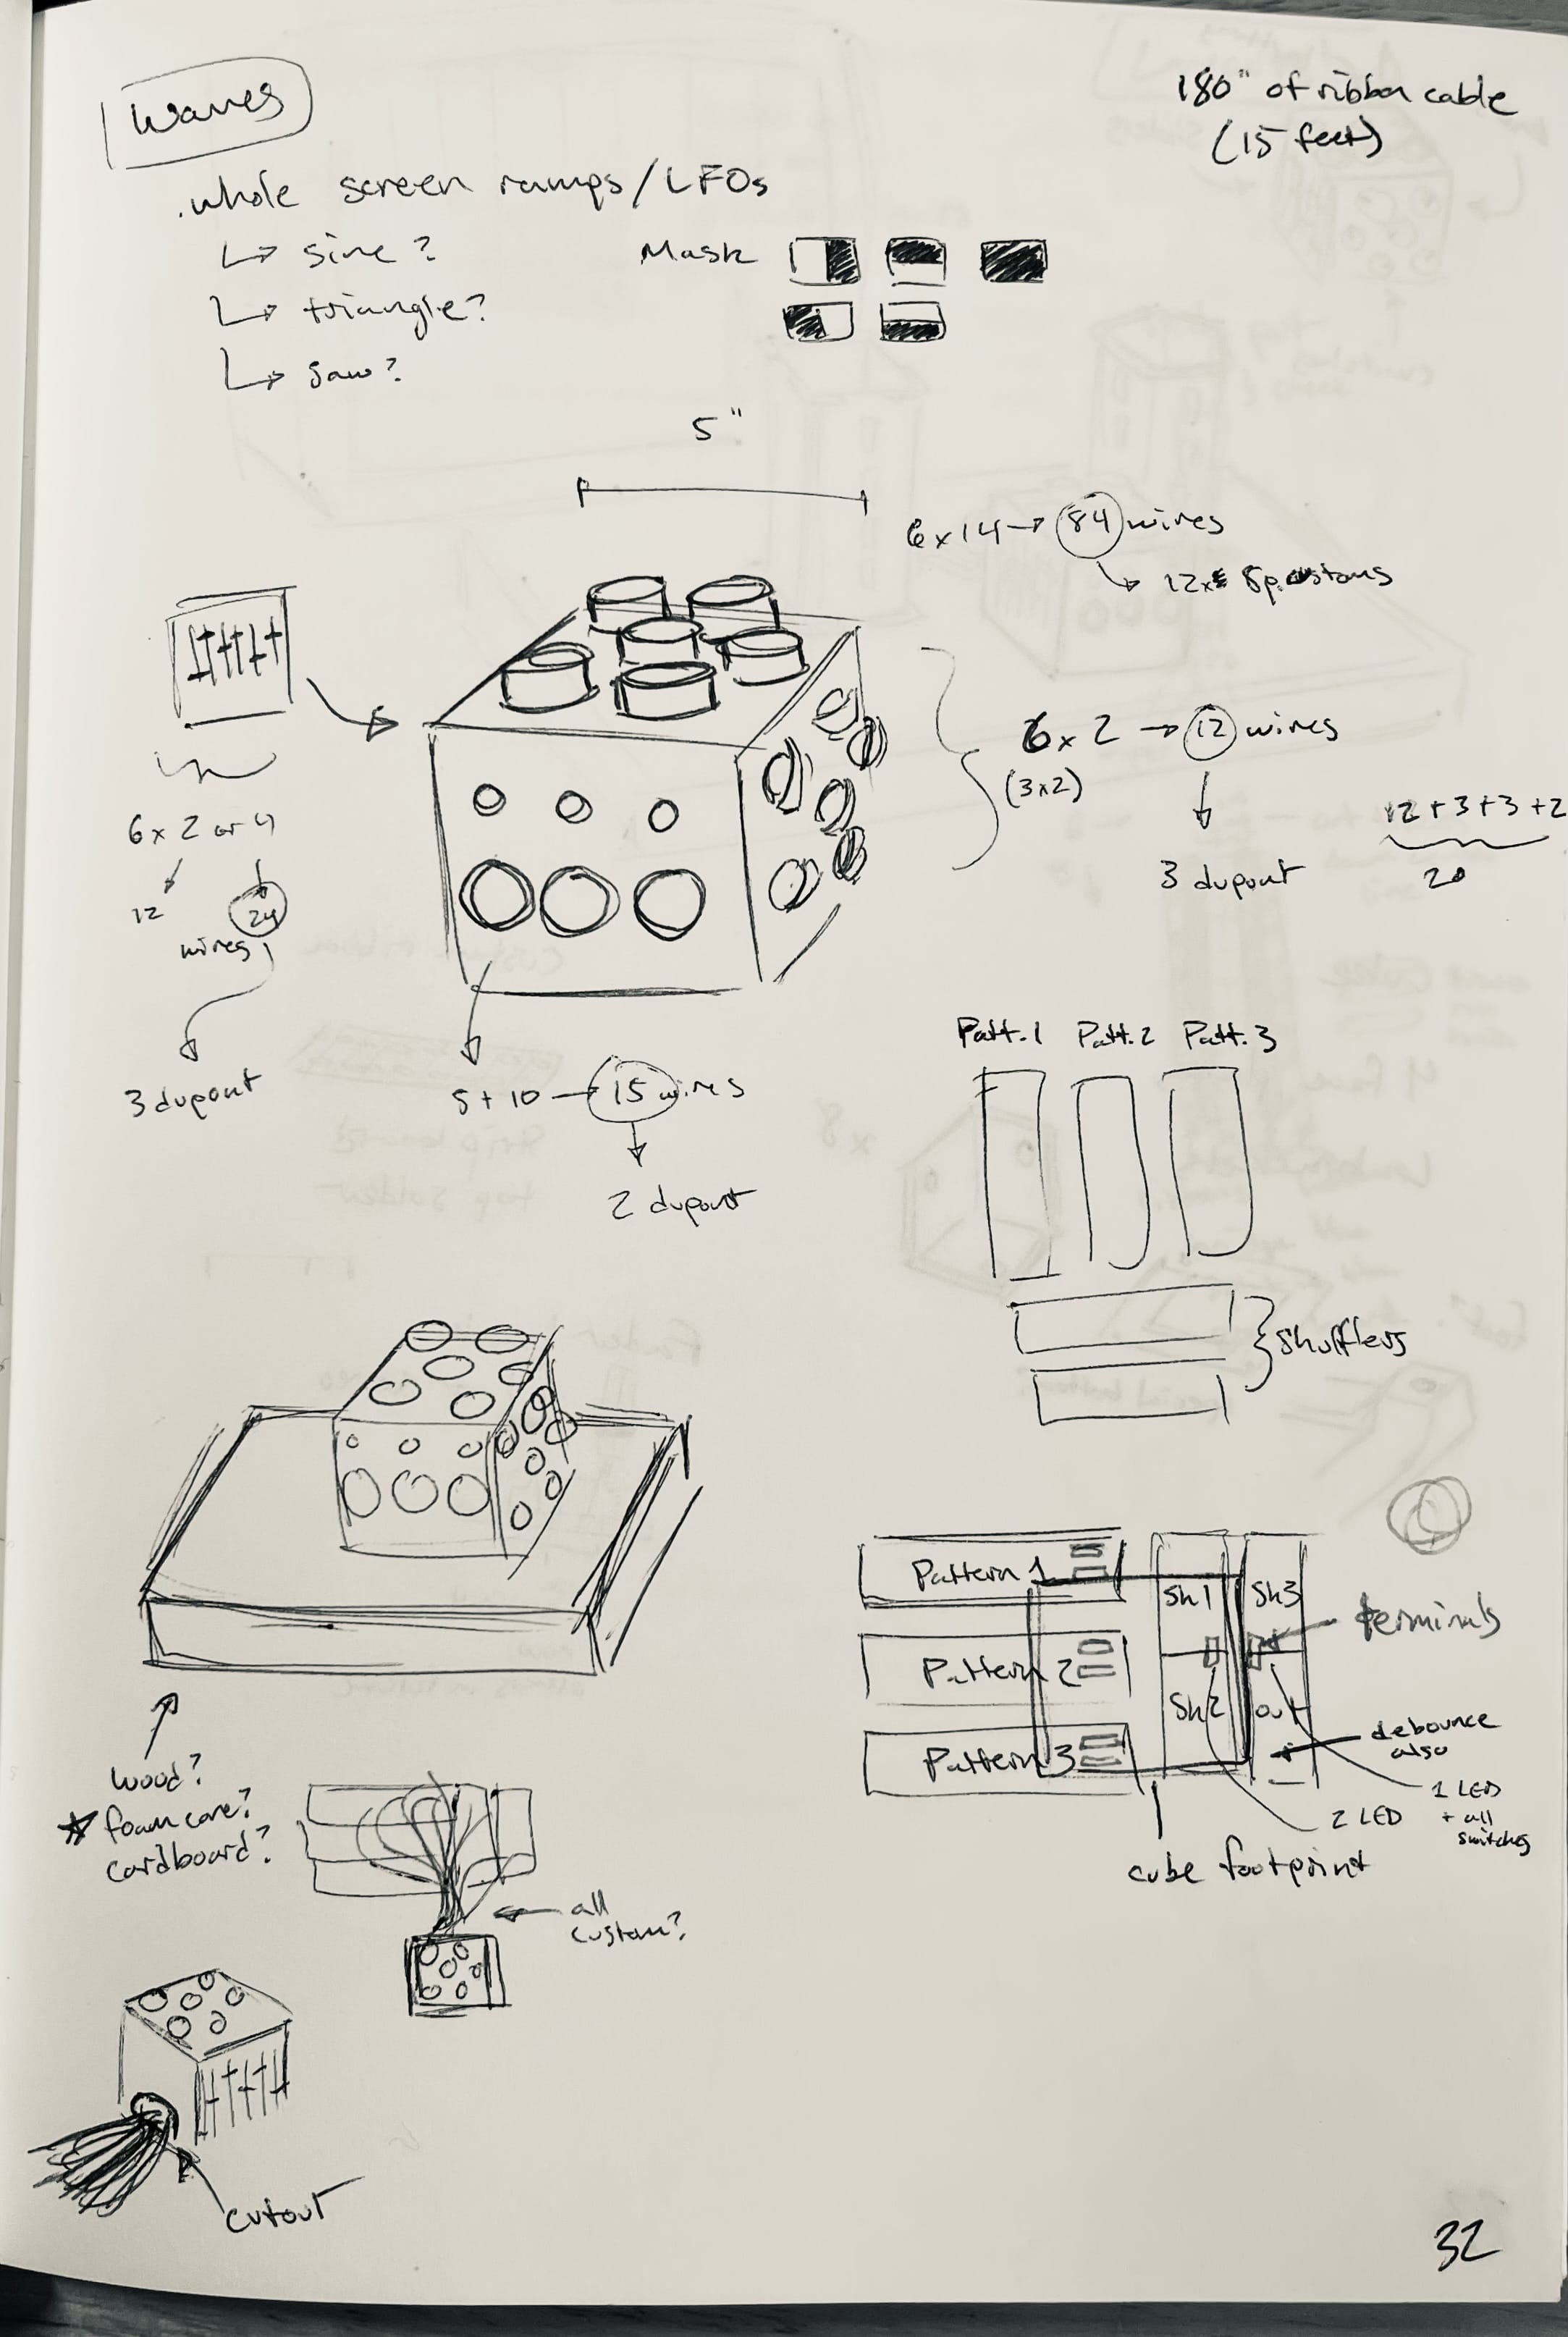 waves
180" of ribbon cable
(15 feet)
.whole screen ramps/LFOs
↳ sine?
↳ triangle?
↳ saw?
Mask
5"
6x14 → 84 wires
↳ 12x 8p. customs
6x2 → 12 wires
(3x2)
3 dupont
12+3+3+2
20
6x 2 or 4
12
24
wires
3 dupont
5+10 → 15 wires
2 dupont
Patt.1 Patt.2 Patt.3
shufflers
Pattern 1
Pattern 2
Pattern 3
Sh1
Sh3
Sh2
out
terminals
debounce
also
1 LED
+ all
switches
2 LED
cube footprint
wood?
★ foam core?
cardboard?
all
custom?
cutout
32